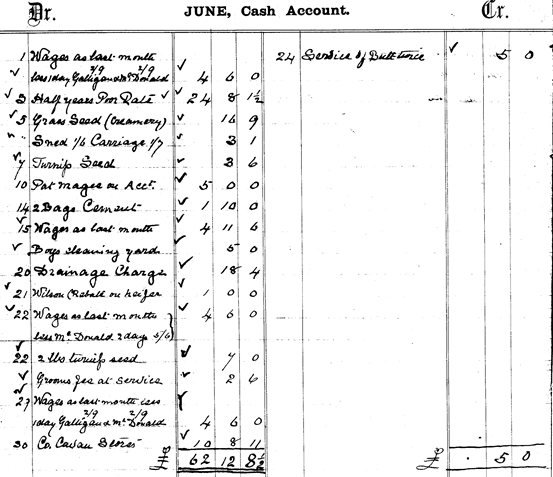 Dr. JUNE, Cash Account. Cr.
1 Wages as last month ✓
2/9 2/9
✓ less 1 day Galligan & Mc Donald 4 6 0
✓ 3 Half years Poor Rate ✓ ✓ 24 8 1½
✓ 5 Grass Seed (Creamery) ✓ 16 9
" Sned 1/6 Carriage 1/7 ✓ 3 1
✓ 7 Turnip Seed ✓ 3 6
10 Pat Magee on Acct. ✓ 5 0 0
14 2 Bags Cement ✓ 1 10 0
✓ 15 Wages as last month ✓ 4 11 6
✓ Boys cleaning yard ✓ 5 0
20 Drainage Charge ✓ 18 4
✓ 21 Wilson (Rebate on heifer ✓ 1 0 0
✓ 22 Wages as last month ✓ 4 6 0
less Mc Donald 2 days 5/6 }
✓ 22 2 lbs turnip seed ✓ 7 0
✓ Grooms fee at service ✓ 2 6
✓ 29 Wages as last month less
2/9 2/9
1 day Galligan & Mc Donald 4 6 0
30 Co. Cavan Stores ✓ 10 8 11
£ 62 12 8½
24 Service of ✓ 5 0
£ . 5 0